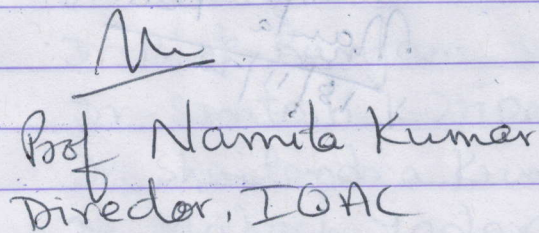 Prof Namita Kumar
Director, IQAC